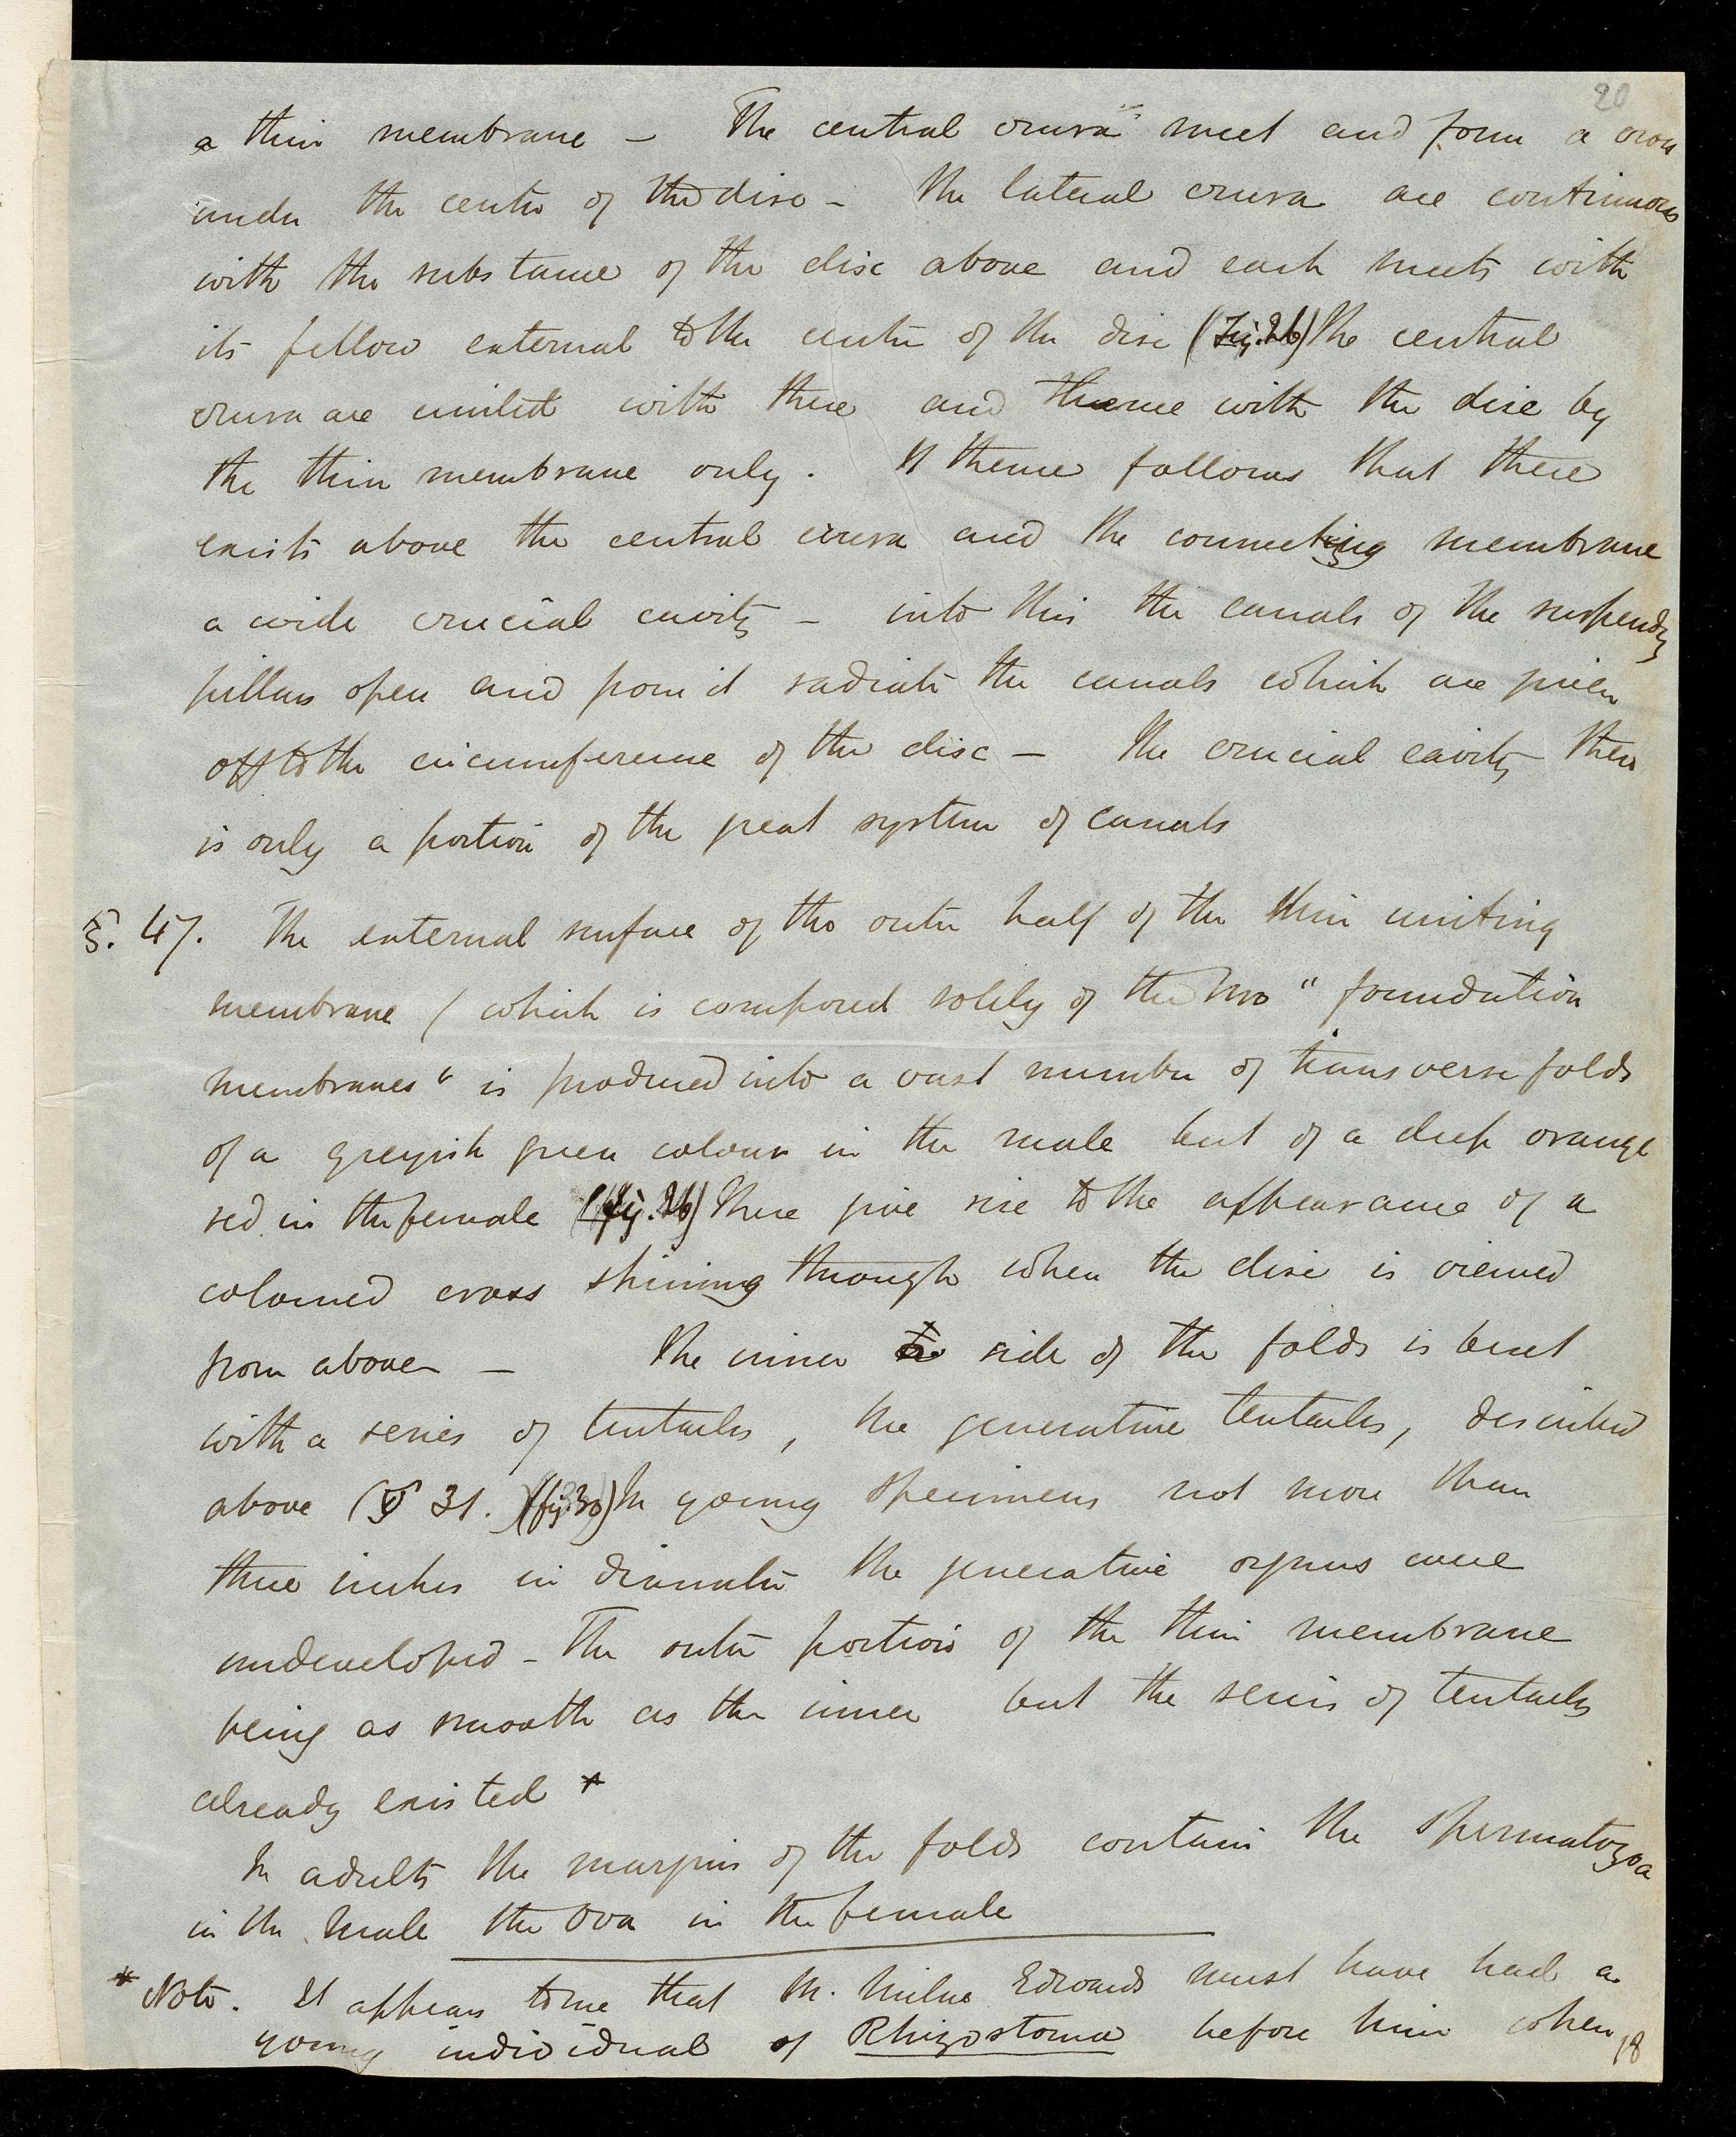 20
a thin membrane – The central crura meet and form a cross
under the centre of the disc – The lateral crura are continuous
with the substance of the disc above and each meets with
its fellow external to the centre of the disc (Fig. 26) The central
crura are united with these and thence with the disc by
the thin membrane only. It thence follows that there
exists above the central crura and the connecting membrane
a wide crucial cavity – into this the canals of the suspendg
pillars open and from it radiate the canals which are given
off to the circumference of the disc – The crucial cavity then
is only a portion of the great system of canals
§. 47. The external surface of the outer half of the thin uniting
membrane (which is composed solely of the two "foundation
membranes" is produced into a vast number of transverse folds
of a greyish green colour in the male but of a deep orange
red in the female (fig. 26) These give rise to the appearance of a
coloured cross shining through when the disc is viewed
from above – The inner side of the folds is beset
with a series of tentacles, the generative tentacles, described
above (§ 31.) (fig. 30) In young specimens not more than
three inches in diameter the generative organs were
undeveloped – The outer portion of the thin membrane
being as smooth as the inner but the series of tentacles
already existed *
In adults the margins of the folds contain the Spermatozoa
in the male the Ova in the female
* Note. It appears to me that M. Milne Edwards must have had a
young individual of Rhizostoma before him when
18